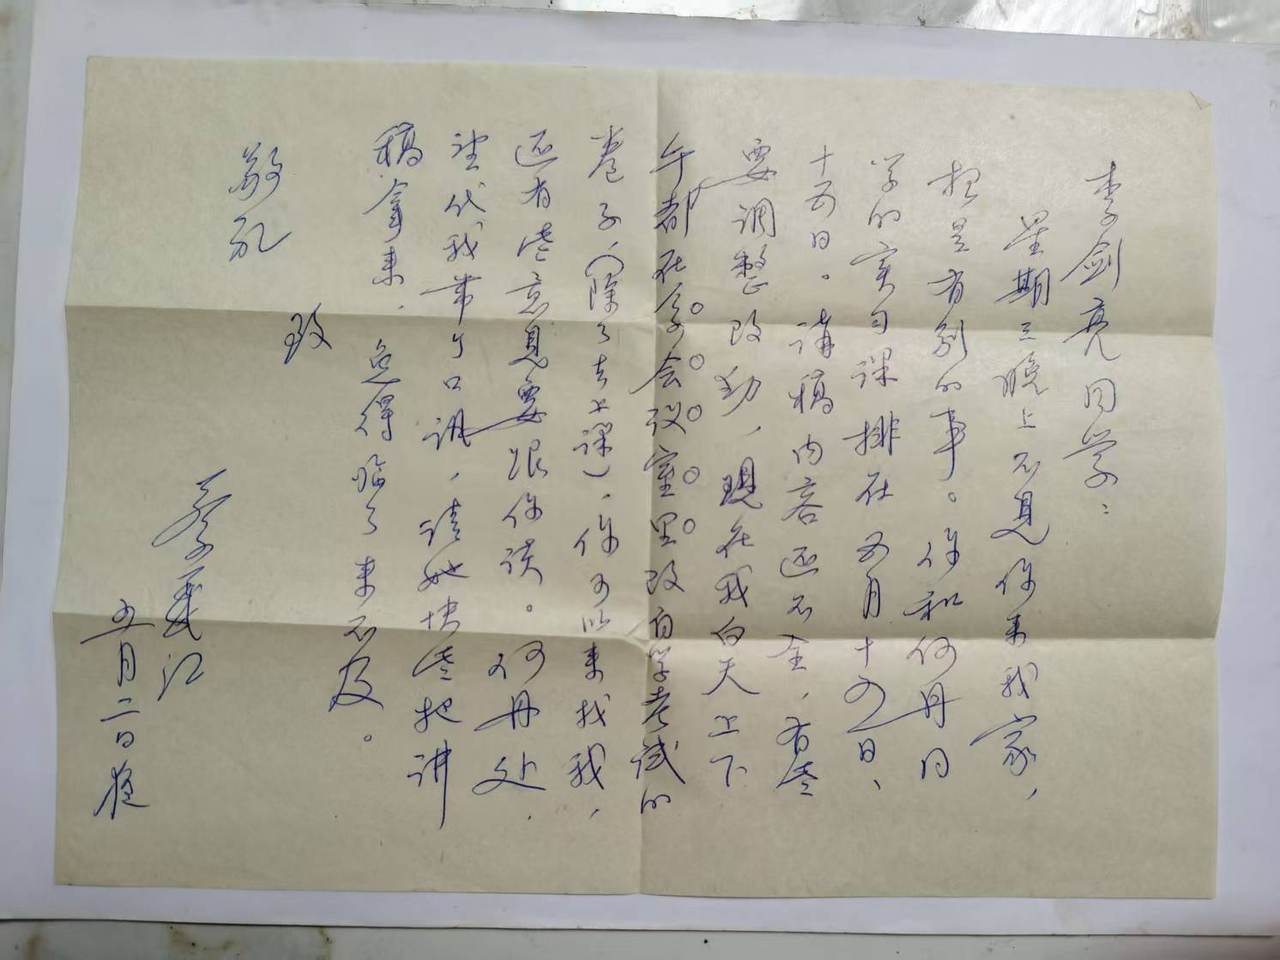 李剑亮同学：
星期三晚上不见你来我家，
想是有别的事。你和何丹同
学的实习课排在五月十四日、
十五日。讲稿内容还不全，有些
要调整改动，现在我白天上下
午都在系会议室里改自学考试的
卷子，（除了去上课），你可以来找我，
还有些意见要跟你谈。何丹处，
望代我带个口讯，请她快些把讲
稿拿来，免得临了来不及。
致
敬礼
蔡义江
五月二日夜